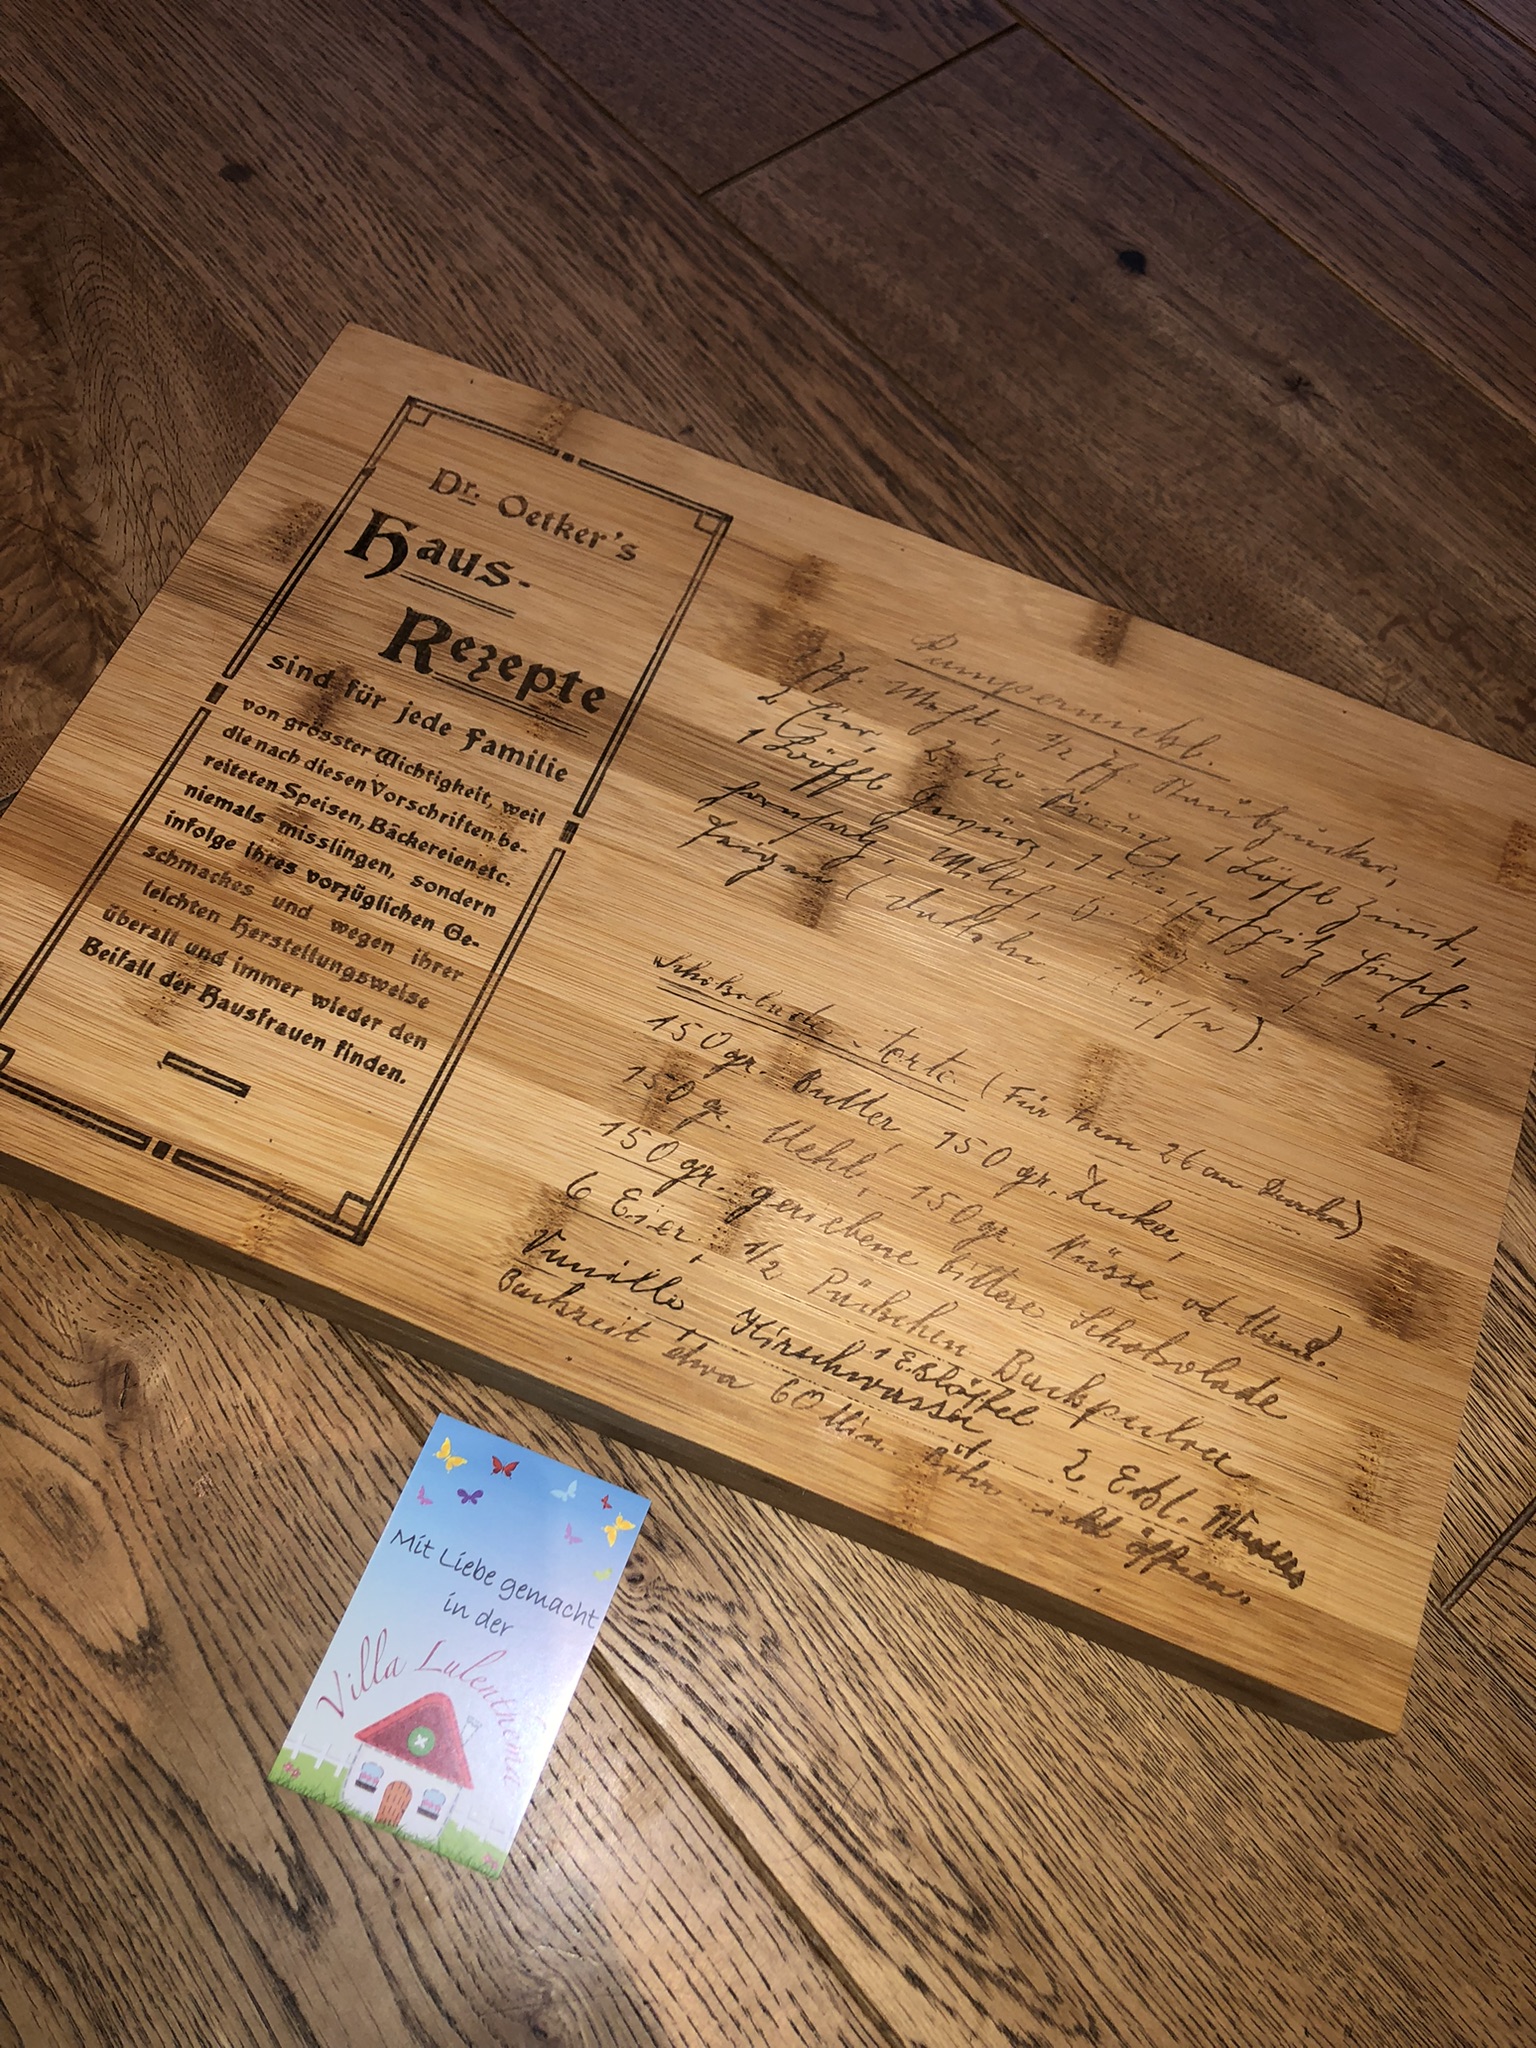 Dr. Oetker's
Haus-
Rezepte
sind für jede Familie
von grösster Wichtigkeit, weil
die nach diesen Vorschriften be-
reiteten Speisen, Bäckereien etc.
niemals misslingen, sondern
infolge ihres vorzüglichen Ge-
schmackes und wegen ihrer
leichten Herstellungsweise
überall und immer wieder den
Beifall der Hausfrauen finden.
1/2 Pf. Staubzucker,
2 Eier, 1 Löffel Zimt,
1 Löffel Gewürz, 1
Milch,
Feigen (Datteln, Nüsse).
Schokolade-Torte (Für Form 26 cm
150 gr. Butter, 150 gr. Zucker,
150 gr. Mehl, 150 gr. Nüsse od. Mand.
150 gr. geriebene bittere Schokolade
6 Eier, 1/2 Päckchen Backpulver
1 Esslöffel
Vanille, Kirschwasser 2 Essl. Wasser
Backzeit etwa 60 Min. Rohr nicht öffnen.
Mit Liebe gemacht
in der
Villa Lulenthema